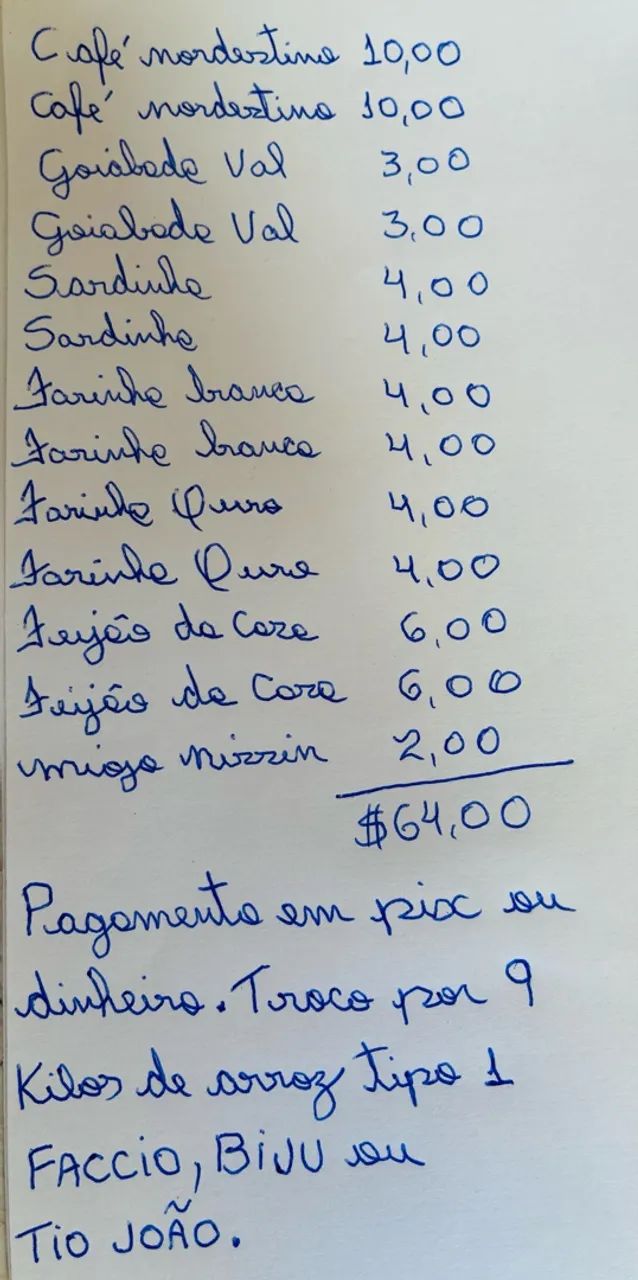 Café nordestino 10,00
Café nordestino 10,00
Goiabada Val 3,00
Goiabada Val 3,00
Sardinha 4,00
Sardinha 4,00
Farinha branca 4,00
Farinha branca 4,00
Farinha Ouro 4,00
Farinha Ouro 4,00
Feijão da Casa 6,00
Feijão da Casa 6,00
miojo nissin 2,00
$64,00
Pagamento em pix ou
dinheiro. Troco por 9
Kilos de arroz tipo 1
FACCIO, BIJU ou
TIO JOÃO.